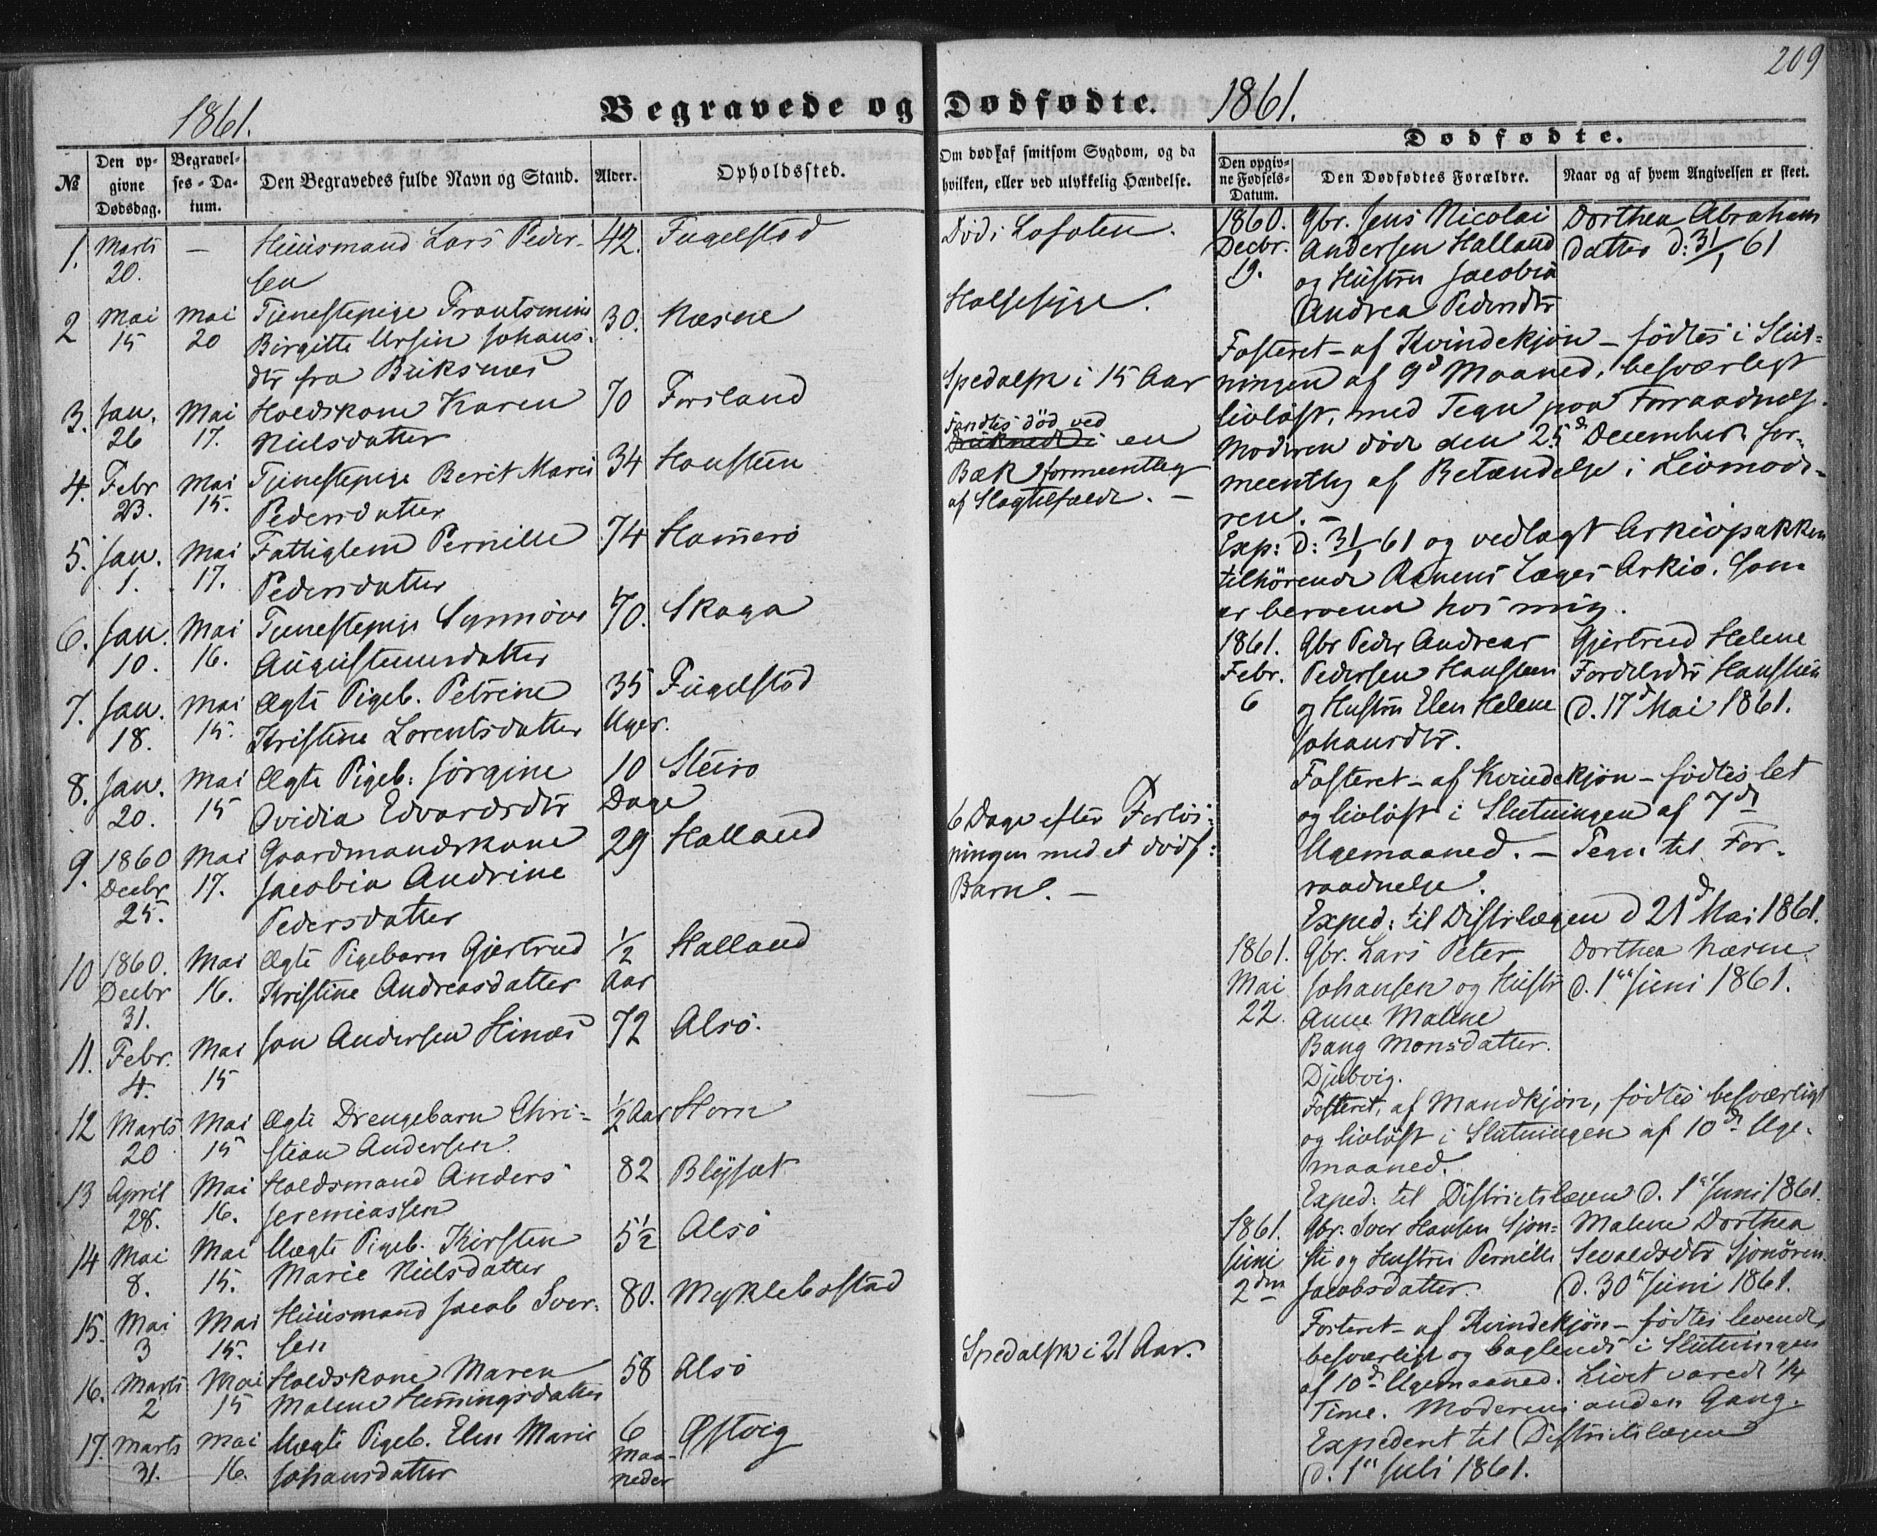 209
1861.
Begravede og Dødfødte.
1861.
Dødfødte.
№
Den op-
givne
Dødsdag.
Begravel-
ses-Da-
tum.
Den Begravedes fulde Navn og Stand.
Alder.
Opholdssted.
Om død af smitsom Sygdom, og da
hvilken, eller ved ulykkelig Hændelse.
Den opgiv-
ne Fødsels-
Datum.
Den Dødfødtes Forældre.
Naar og af hvem Angivelsen er skeet.
1. Marts — Huusmand Lars Peder- 42. Fugelstad Død i Lofoten.
20. sen
2 Mai Mai Tjenestepige Frantsmine 30. Næsne Halssyge.
15 20 Birgitte Ursin Johans-
dtr fra Buksnæs
3. Jan. Mai Holdskone Karen 70 Forsland Spedalsk i 15 Aar
26 17. Nielsdatter
4. Febr Mai Tjenestepige Berit Marie 34 Hansteen Fandtes død ved
23. 15. Pedersdatter Druknede i en
Bæk formeentleg
af Slagtilfælde. —
5. Jan. Mai Fattiglem Pernille 74 Hamerø
1. 17. Pedersdatter
6. Jan. Mai Tjenestepige Synnøve 70. Skaga
10. 16. Augustinusdatter
7. Jan. Mai Ægte Pigeb. Petrine 35 Fugelstad
18. 15. Kristine Lorentsdatter Uger.
8. Jan. Mai Ægte Pigeb. Jörgine 10 Steiro
20. 15 Ovidia Edvardsdtr Dage
9. 1860 Mai Gaardmandskone 29 Halland 6 Dage efter Forløs-
Decbr 17. Jacobia Andrine ningen med et dødf:
25. Pedersdatter Barn. —
10 1860. Mai Ægte Pigebarn Gjertrud ½ Halland
Decbr 16. Kristine Andreasdatter Aar
31.
11. Febr. Mai Jon Andersen Hinæs 72 Alsø.
4. 15
12 Marts Mai Ægte Drengebarn Chri- ½ Aar Horn
20 15 stian Andersen.
13 April Mai Holdsmand Anders 82 Bleysæt
28. 16. Jeremiassen
14 Mai Mai Uægte Pigeb. Kirsten 5½ Alsø
8. 15. Marie Nielsdatter
15. Mai Mai Huusmand Jacob Iver- 80. Myklebostad
3 15. sen
16. Marts Mai Holdskone Maren 58 Alsø Spedalsk i 21 Aar.
2 15 Malene Hemmingsdatter
17. Marts Mai Uægte Pigeb. Elen Marie 6 Østvig
31. 16. Johansdatter Maa-
neder
1860. Gbr. Jens Nicolai Dorthea Abrahams
Decbr. Andersen Halland datter d: 31/1 61
19. og Hustru Jacobia
Andrea Pedersdtr
Fosteret — af Kvindekjøn — fødtes i Slut-
ningen af 9d Maaned, besværligt
livløst, med Tegn paa Forraadnelse.
Moderen døde den 25d December for-
meentlig af Betændelse i Livmode-
ren. —
Exp: d: 31/1 61 og vedlagt Arkivpakken
tilhörende Ranens Læges Arkiv. Som
er beroende hos mig.
1861. Gbr Peder Andreas Gjertrud Helene
Febr. Pedersen Hansteen Fordelsdtr Hansteen
6 og Hustru Elen Helene d. 17d Mai 1861.
Johansdtr.
Fosteret — af Kvindekjøn — fødtes let
og livløst i Slutningen af 7d
Ugemaaned. — Tegn til For-
raadnelse.
Exped: til Distrlægen d 21d Mai 1861.
1861. Gbr. Lars Peter Dorthea Næsne
Mai Johansen og Hustr d. 1ste Juni 1861.
22. Anne Malene
Bang Monsdatter.
Djubvig.
Fosteret, af Mandkjøn, fødtes besværligt
og livløst i Slutningen af 10d Uge-
maaned.
Exped: til Districtslægen d. 1st Juni 1861.
1861. Gbr. Iver Hansen Sjon- Malene Dorthea
Juni sti og Hustru Pernille Sevaldsdtr Sjonören
2den Jacobsdatter. d. 30te Juni 1861.
Fosteret — af Kvindekjøn — fødtes levende,
besværligt og baglends i Slutningen
af 10d Ugemaaned. Livet varede ¼
Time. Moderens anden Gang.
Expederet til Districtslægen
d. 1st Juli 1861.